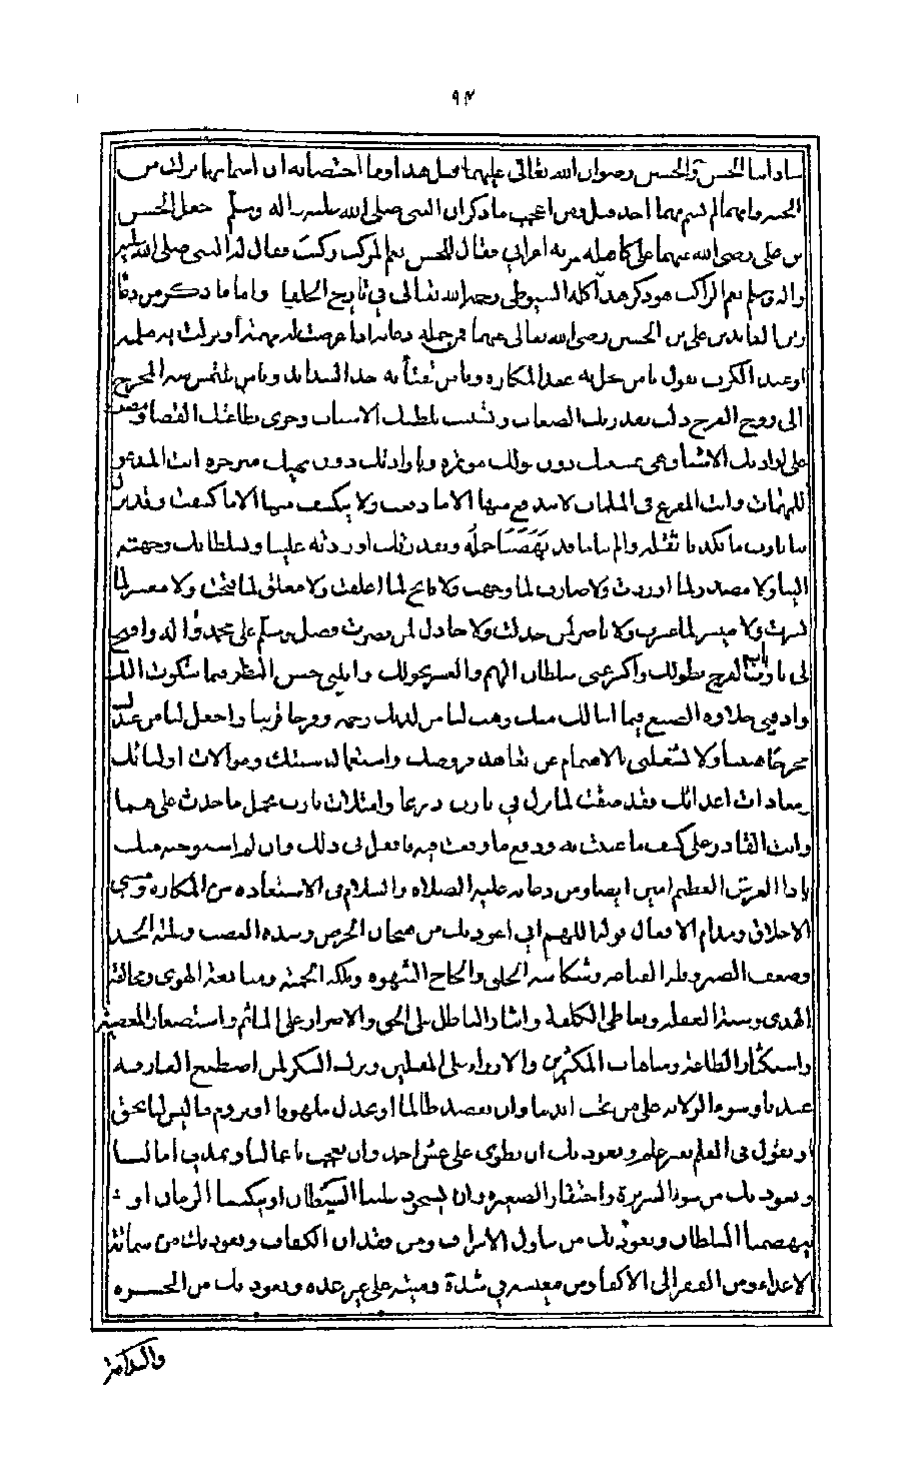 ٩٢
ساداتنا الحسن والحسين رضوان الله تعالى عليهما قبل هذا وما اختصا به ان اسماءهما نزلت من
الجنة وانهما لم يسم بهما احد قبل ومن اعجب ما ذكر ان النبي صلى الله عليه واله وسلم حمل الحسن
بن علي رضي الله عنهما على كاهله مر به اعرابي فقال للحسن نعم المركب ركبت فقال له النبي صلى الله عليه
واله وسلم نعم الراكب هو ذكر هذا كله السيوطي رحمه الله تعالى في تاريخ الخلفا واما ما ذكر من دعا
زين العابدين علي بن الحسين رضي الله تعالى عنهما فمن جملة دعائه اذا عرضت له مهمة او نزلت به ملمة
او عند الكرب يقول يا من تحل به عقد المكاره ويا من يفثأ به حد الشدائد ويا من يلتمس منه المخرج
الى روح الفرج ذلت بقدرتك الصعاب وتسببت بلطفك الاسباب وجرى بطاعتك القضا ومضت
على ارادتك الاشيا فهي بمشيتك دون قولك مؤتمرة وبارادتك دون نهيك منزجرة انت المدعو
للمهمات وانت المفزع في الملمات لا يندفع منها الا ما دفعت ولا ينكشف منها الا ما كشفت وقد نزل
بنا يا رب ما تكادنا ثقله والم بنا ما قد بهضنا حمله وبقدرتك اوردته علينا وبسلطانك وجهته
الينا ولا مصدر لما اوردت ولا صارف لما وجهت ولا فاتح لما اغلقت ولا مغلق لما فتحت ولا معسر لما
يسرت ولا ميسر لما عسرت ولا ناصر لمن خذلت ولا خاذل لمن نصرت فصل وسلم على محمد واله وافتح
لي يا رب باب الفرج بطولك واكسر عني سلطان الهم والعسر بحولك وانلني حسن النظر فيما شكوت اليك
واذقني حلاوة الصنع فيما اسالك منك وهب لنا من لدنك رحمة وفرجا قريبا واجعل لنا من عندك
مخرجا هنيا ولا تشغلني بالاهتمام عن تعاهد فروضك واستعمال سنتك وموالات اوليائك
ومعادات اعدائك فقد ضقت لما نزل بي يا رب ذرعا وامتلات يا رب بحمل ما حدث علي هما
وانت القادر على كشف ما منيت به ودفع ما وقعت فيه فافعل لي ذلك وان لم استوجبه منك
يا ذا العرش العظيم امين ايضا ومن دعائه عليه الصلاة والسلام في الاستعاذة من المكاره وسيئ
الاخلاق ومذام الافعال قوله اللهم اني اعوذ بك من هيجان الحرص وسورة الغضب وغلبة الحسد
وضعف الصبر وقلة القناعة وشكاسة الخلق والحاح الشهوة وملكة الحمية ومتابعة الهوى ومخالفة
الهدى وسنة الغفلة وتعاطي الكلفة وايثار الباطل على الحق والاصرار على الماثم واستصغار المعصية
واستكثار الطاعة ومباهات المكثرين والازراء على المقلين وترك الشكر لمن اصطنع العارفة
عندنا وسوء الولاية على من تحت ايدينا وان نعضد ظالما او نخذل ملهوفا او نروم ما ليس لنا بحق
او نقول في العلم بغير علم ونعوذ بك ان ننطوي على غش احد وان نعجب باعمالنا ونمد في امالنا
ونعوذ بك من سوء السريرة واحتقار الصغيرة وان يستحوذ علينا الشيطان او ينكبنا الزمان او
يتهضمنا السلطان ونعوذ بك من تناول الاسراف ومن فقدان الكفاف ونعوذ بك من شماتة
الاعداء ومن الفقر الى الاكفا ومن معيشة في شدة وميتة على غير عدة ونعوذ بك من الحسرة
والندامة